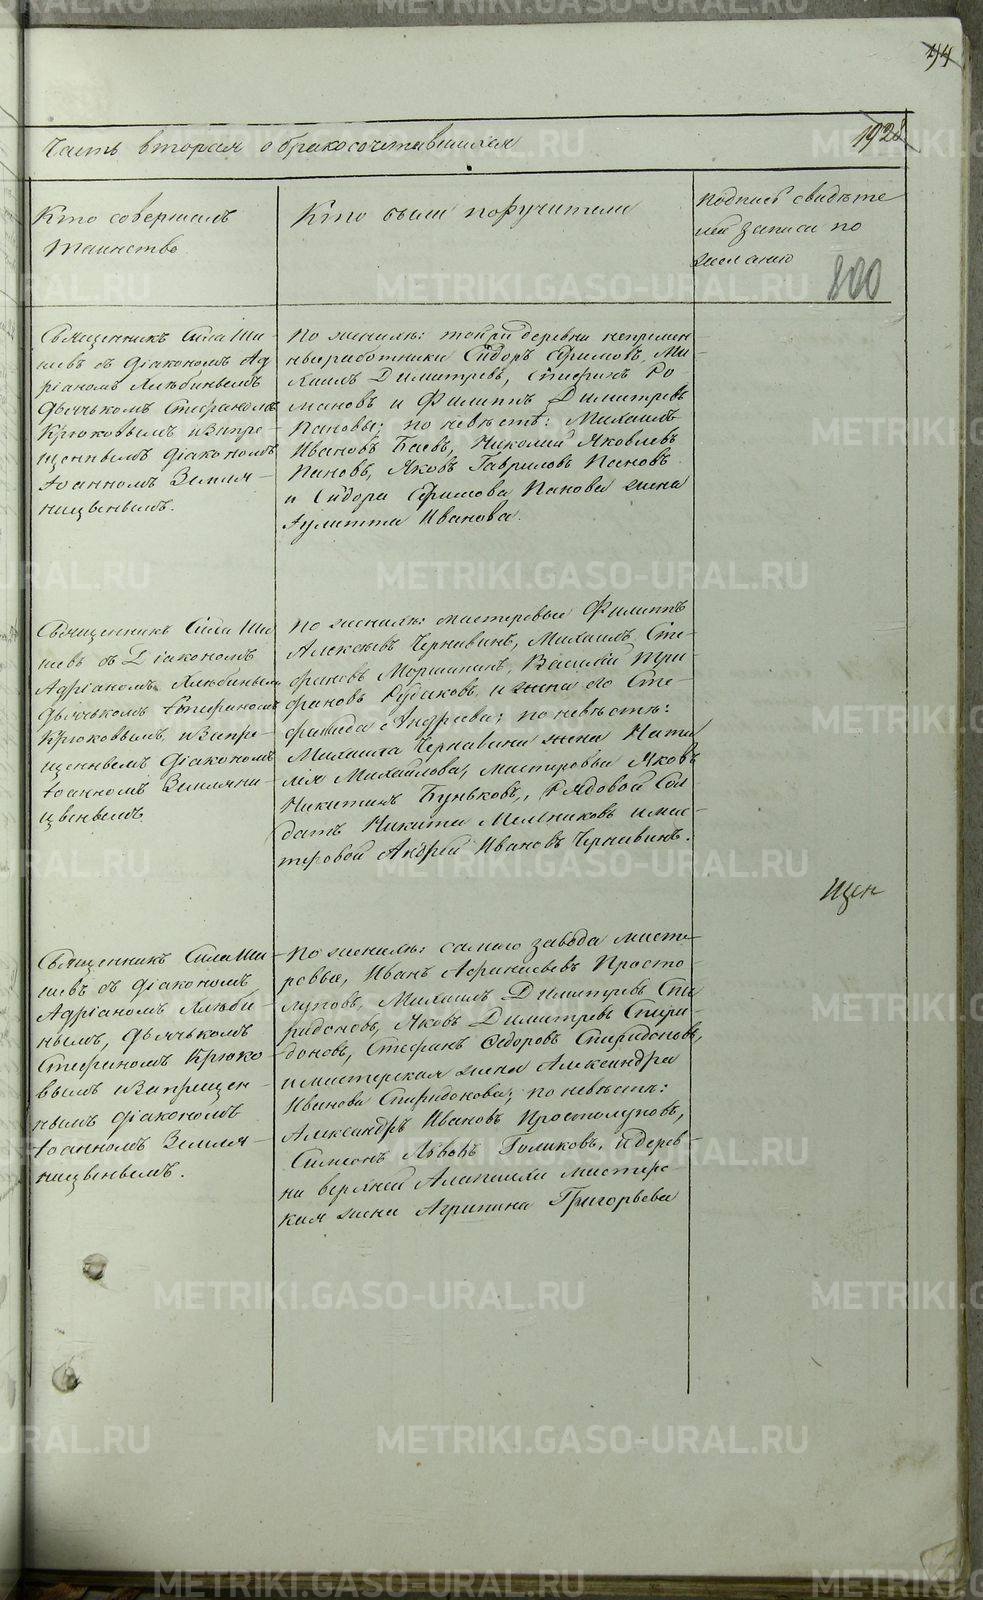 44
Часть вторая о бракосочетавшихся
1928
Кто совершалъ
таинство
Кто были поручители
подпись свидѣте
лей записи по
желанию
800
Священникъ Сила Ши
шевъ съ діакономъ Ад
ріаномъ Хлѣбинымъ
дьячькомъ Стефаномъ
Крюковымъ и запре-
щеннымъ діакономъ
Іоанномъ Земля-
ницынымъ.
по женихѣ: той же деревни непремен
ные работники Сидоръ Ефимовъ, Ми-
хаилъ Димитревъ, Стефанъ Ро
мановъ и Филиппъ Димитревъ
Пановы; по невѣстѣ: Михаилъ
Ивановъ Баевъ, Николай Яковлевъ
Пановъ, Яковъ Гавриловъ Пановъ
и Сидора Ефимова Панова жена
Іулитта Иванова.
Священникъ Сила Ши
шевъ съ Діакономъ
Адріаномъ Хлѣбинымъ
дьячькомъ Стефаномъ
Крюковымъ, и запре-
щеннымъ діакономъ
Іоанномъ Земляни-
цынымъ.
по женихѣ: мастеровые Филиппъ
Алексѣевъ Чернавинъ, Михаилъ Сте-
фановъ Моршининъ, Василій Три-
фановъ Рудаковъ, и жена его Сте-
фанида Андреева; по невѣстѣ:
Михаила Чернавина жена Ната
лія Михайлова, мастеровые Яковъ
Никитинъ Буньковъ, Рядовой Сол
датъ Никита Мельниковъ и мас-
теровой Андрей Ивановъ Чернавинъ.
Щен
Священникъ Сила Ши
шевъ съ діакономъ
Адріаномъ Хлѣби-
нымъ, дьячькомъ
Стефаномъ Крюко
вымъ и запрещен-
нымъ діакономъ
Іоанномъ Земля-
ницынымъ.
по женихѣ: самаго завода масте-
ровые, Иванъ Афанасьевъ Просто-
луповъ, Михаилъ Димитревъ Спи
ридоновъ, Яковъ Димитревъ Спири-
доновъ, Стефанъ Ѳедоровъ Спиридоновъ,
и мастерская жена Александра
Иванова Спиридонова; по невѣстѣ:
Александръ Ивановъ Простолуповъ,
Симеонъ Львовъ Голиковъ, и дерев-
ни верхней Алапаихи мастерс-
кая жена Агрипина Григорьева
METRIKI.GASO-URAL.RU